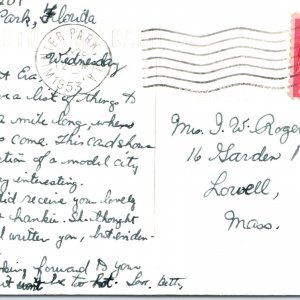 Park, Florida
Wednesday
a list of things to
a mile long, when
come. This card shows
tion of a model city
y interesting.
did receive you lovely
hankie. I thought
I written you, but eviden-
king forward to your
won't be too hot. Love, Betty
1953
Mrs. J. W. Rogers
16 Garden
Lowell,
Mass.